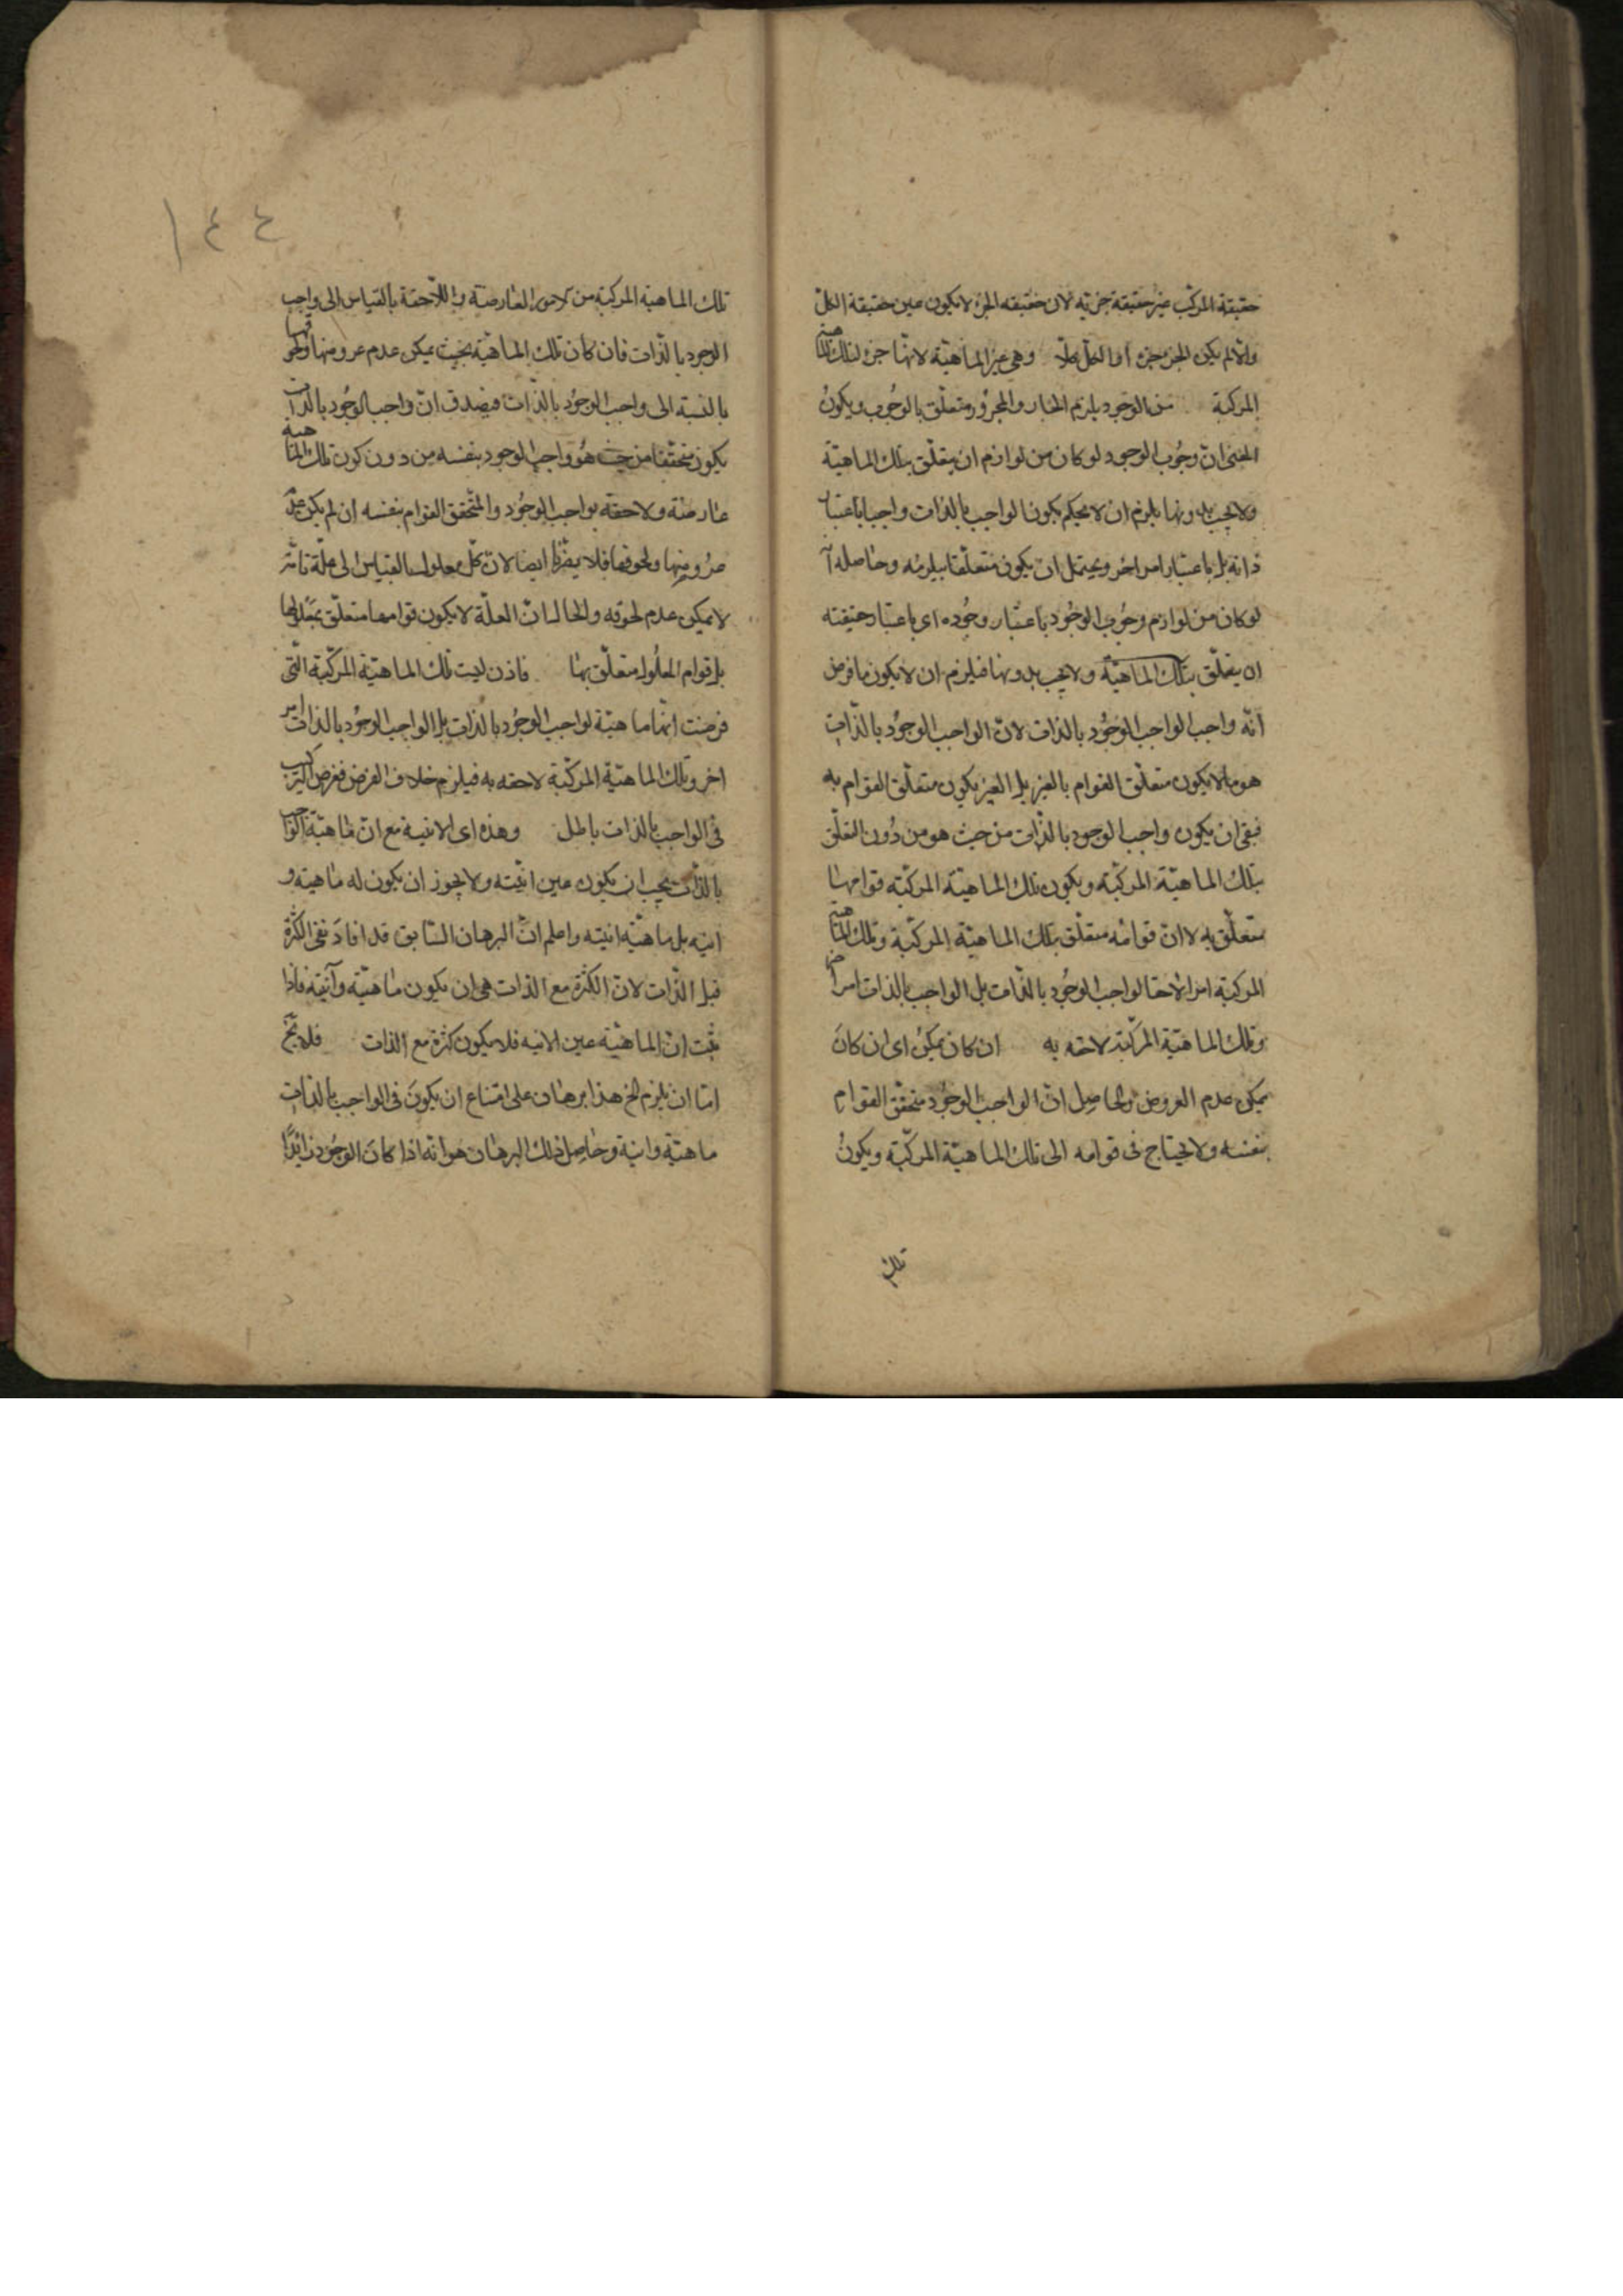 حقيقة المركّب غير حقيقة جزئيه لان حقيقه الجزء لا يكون عين حقيقة الكلّ
والّا لم يكن الجزء جزء او الكلّ كلّا وهى غير الماهيّة لانّها جزء لتلك الماهيّة
المركبة من الوجود يلزم الجار والمجرور متعلّق بالوجوب ويكون
المعنى انّ وجوب الوجود لو كان من لوازم ان يتعلّق بتلك الماهيّة
ولا يجب بدونها يلزم ان لا يحكم بكون الواجب بالذات واجبا باعتبار
ذاته بل باعتبار امر اخر ويحتمل ان يكون متعلّقا بيلزمه وحاصله انّه
لو كان من لوازم وجوب الوجود باعتبار وجوده اى باعتبار حقيقته
ان يتعلّق بتلك الماهيّة ولا يجب بدونها فيلزم ان لا يكون ما فرض
انّه واجب الواجب الوجود بالذات لانّ الواجب الوجود بالذّات
هو ما لا يكون متعلّق القوام بالغير بل الغير يكون متعلّق القوام به
فبقى ان يكون واجب الوجود بالذّات من حيث هو من دون التعلّق
بتلك الماهيّة المركّبه ويكون تلك الماهيّة المركّبه قوامها
متعلّق به لا انّ قوامه متعلّق بتلك الماهيّة المركّبة وتلك الماهيّة
المركبّة امرا لاحقا لواجب الوجود بالذّات بل الواجب بالذات امر اخر
وتلك الماهيّة المركّبة لاحقه به ان كان يمكن اى ان كان
يمكن عدم العروض والحاصل انّ الواجب الوجود متحقّق القوام
بنفسه ولا يحتاج فى قوامه الى تلك الماهيّة المركّبة ويكون
تلك
١٤٤
تلك الماهية المركبة من الامور العارضة واللّاحقة بالقياس الى واجب
الوجود بالذّات فان كان تلك الماهيّة بحيث يمكن عدم عروضها ولحوقها
بالنسبة الى واجب الوجود بالذّات فيصدق انّ واجب الوجود بالذات
يكون متحقّقا من حيث هو واجب الوجود بنفسه من دون كون تلك الماهيه
عارضة ولاحقه بواجب الوجود والمتحقق القوام بنفسه ان لم يكن عدم
عروضها ولحوقها فلا يضرّنا ايضا لانّ كلّ معلول بالقياس الى علّة تامّة
لا يمكن عدم لحوقه والحال انّ العلّة لا يكون قوامها متعلّق بمعلولها
بل قوام المعلول متعلّق بها فاذن ليست تلك الماهيّة المركّبة الّتى
فرضت انّها ماهيّة لواجب الوجود بالذات بل الواجب الوجود بالذات امر
اخر وتلك الماهيّة المركّبة لاحقه به فيلزم خلاف الفرض ففرض التركيب
فى الواجب بالذات باطل وهذه اى الانية مع انّ ماهيّة الواجب
بالذّات يجب ان يكون عين انيّته ولا يجوز ان يكون له ماهية و
انيّه بل ماهيّه انيته واعلم انّ البرهان السّابق قد افاد نفى الكثرة
قبل الذّات لانّ الكثرة مع الذات هى ان يكون ماهيّة وآنيّة فاذا
ثبت انّ الماهيّة عين الانيه فلا يكون كثرة مع الذات فلا يخ
امّا ان يلزم الخ هذا برهان على امتناع ان يكون فى الواجب بالذّات
ماهيّة وانية وحاصل ذلك البرهان هو انّه اذا كان الوجود زائدًا